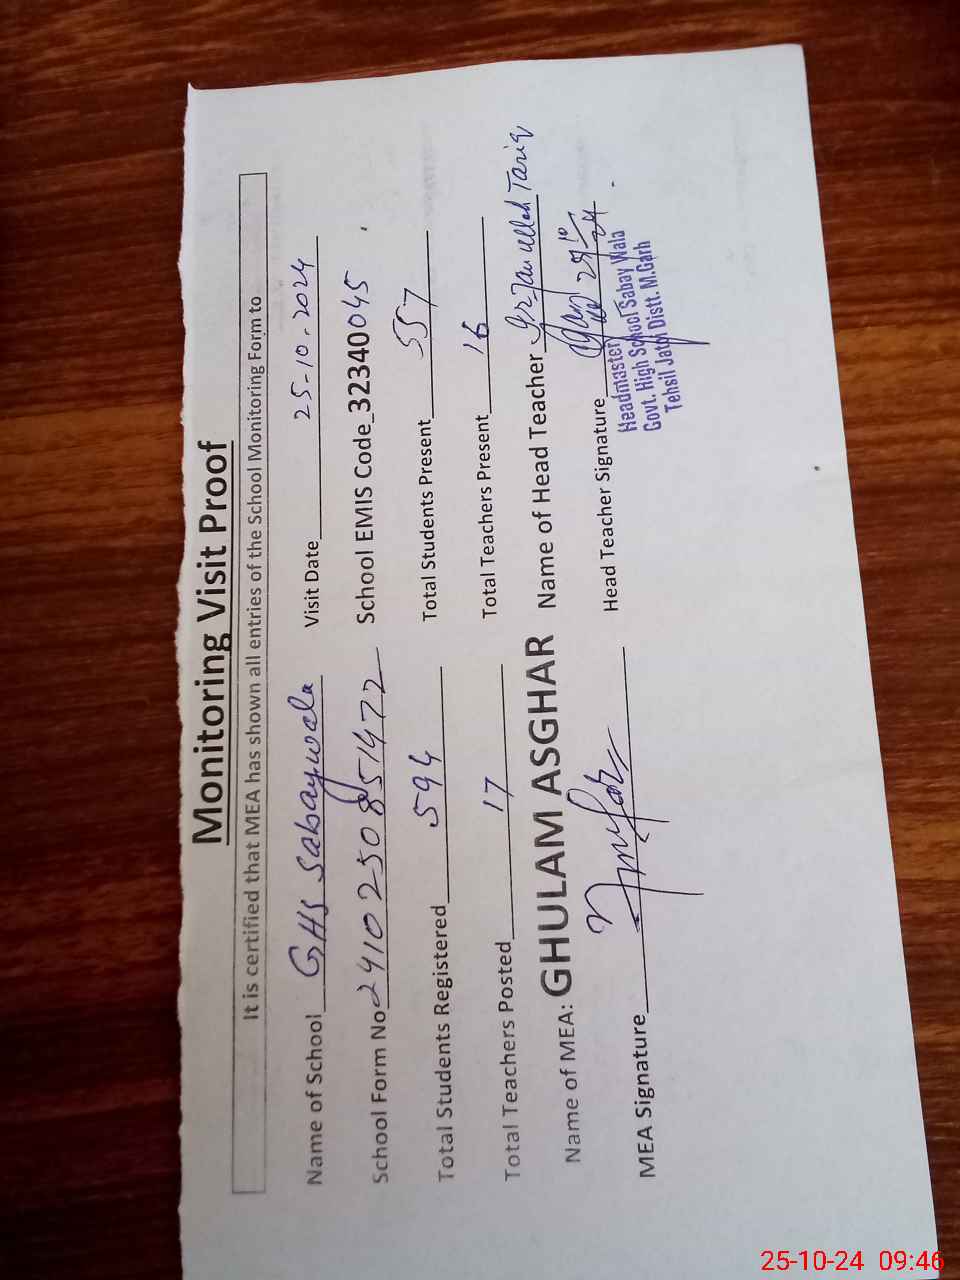 Monitoring Visit Proof
It is certified that MEA has shown all entries of the School Monitoring Form to
Name of School GHS Sabaywala Visit Date 25-10.2024
School Form No 2410250851472 School EMIS Code 32340045
Total Students Registered 594 Total Students Present 557
Total Teachers Posted 17 Total Teachers Present 16
Name of MEA: GHULAM ASGHAR Name of Head Teacher Tariq
MEA Signature Head Teacher Signature
Headmaster
Govt. High School Sabay Wala
Tehsil Jatoi Distt. M.Garh
25-10-24 09:46